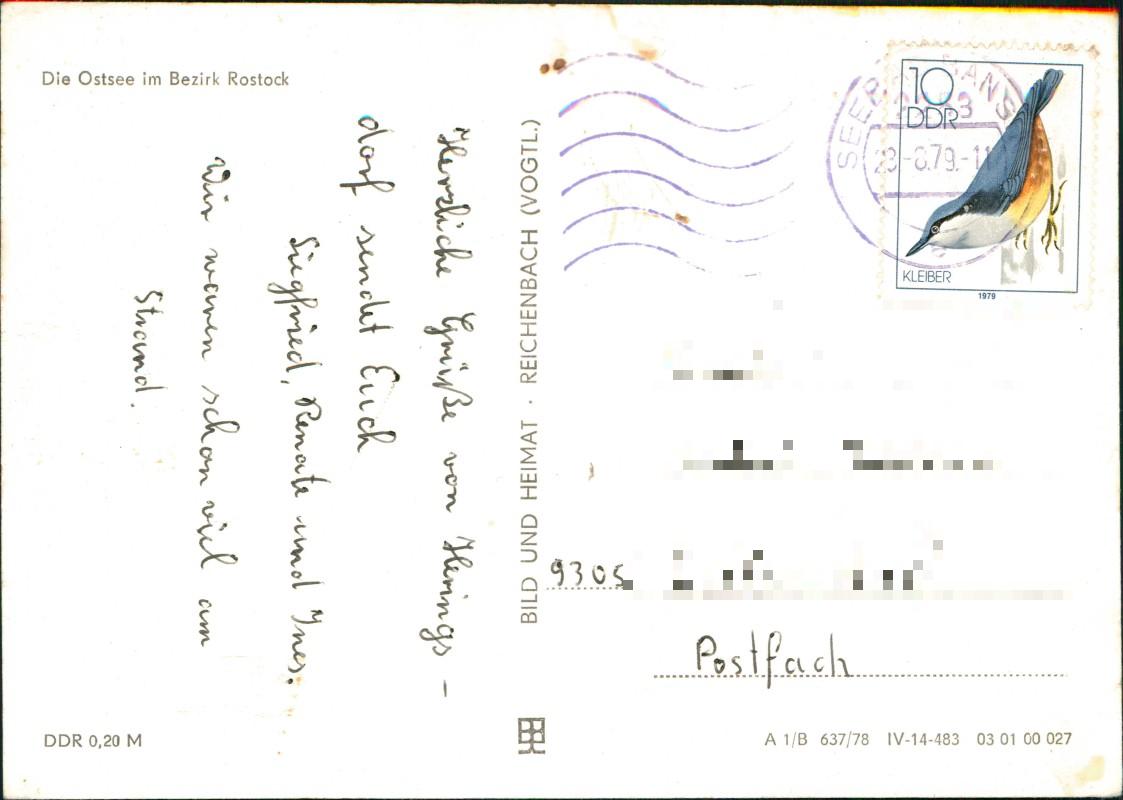 Die Ostsee im Bezirk Rostock
Herzliche Grüße von Herings-
dorf sendet Euch
Siegfried, Renate und Ines.
Wir waren schon viel am
Strand.
BILD UND HEIMAT · REICHENBACH (VOGTL.)
10
DDR
KLEIBER
1979
9305
Postfach
DDR 0,20 M
A 1/B 637/78 IV-14-483 03 01 00 027